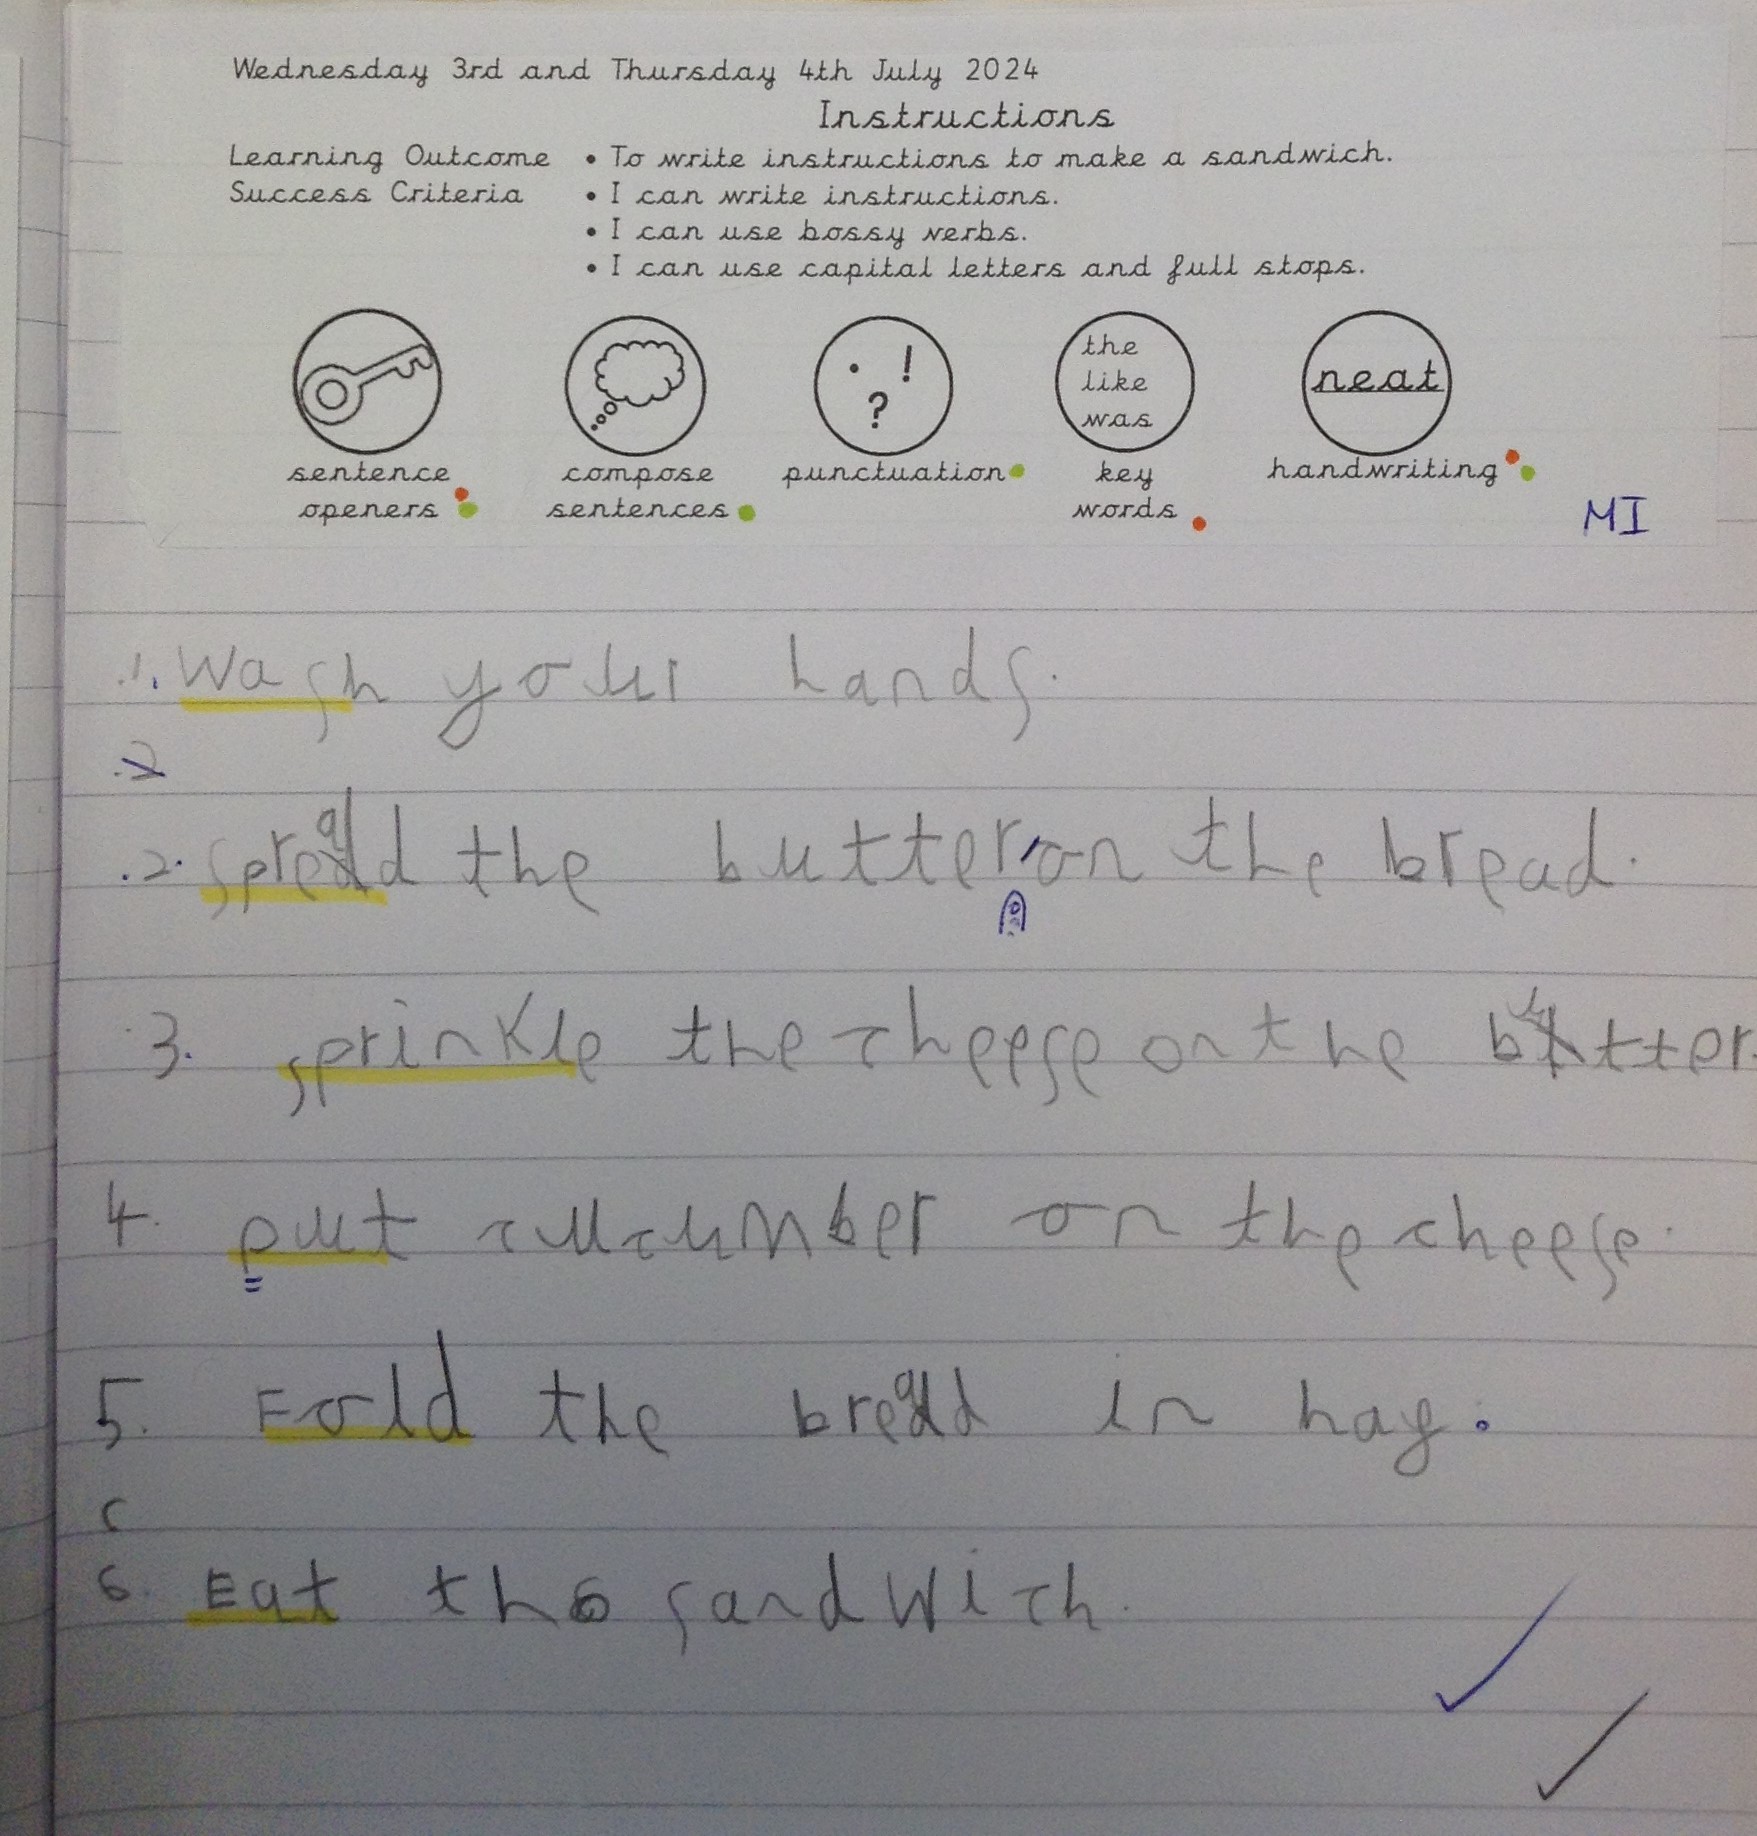 Wednesday 3rd and Thursday 4th July 2024
Instructions
Learning Outcome • To write instructions to make a sandwich.
Success Criteria • I can write instructions.
• I can use bossy verbs.
• I can use capital letters and full stops.
. ! ?
the
like
was
neat
sentence openers
compose sentences
punctuation
key words
handwriting
MI
.1. Wash your hands.
.2
.2. spread the butter on the bread.
.3. sprinkle the cheese on the butter.
4. put cucumber on the cheese.
5. Fold the bread in hay.
6
6. Eat the sandwich.